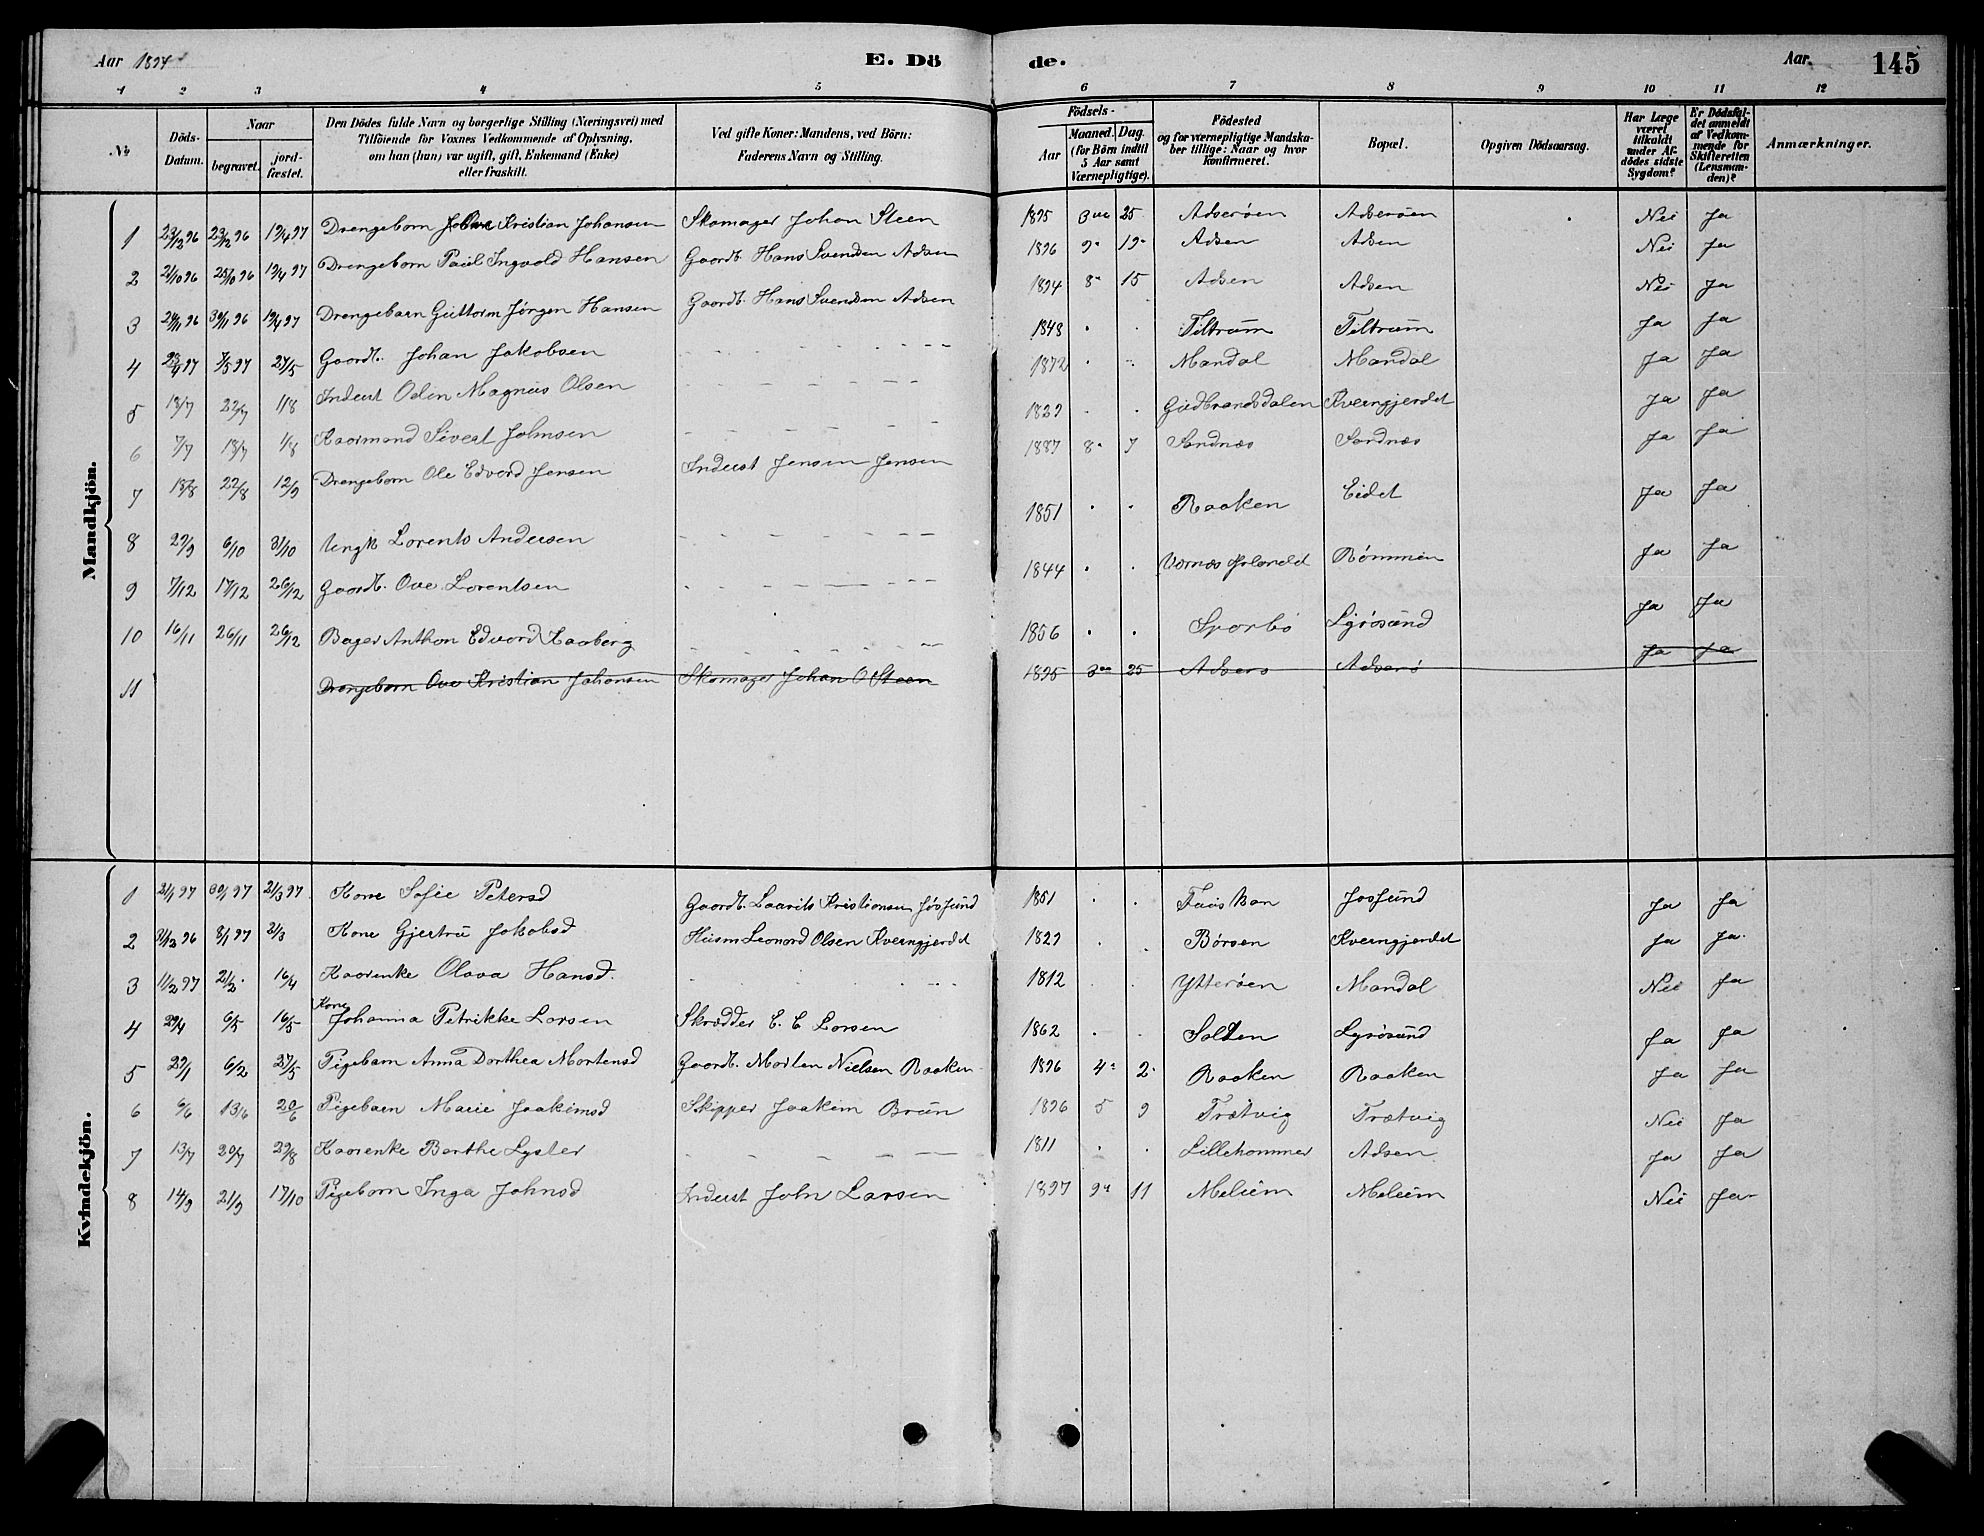 Aar 1897 E. Dö de. Aar. 145
1 2 3 4 5 6 7 8 9 10 11 12
No
Döds-Datum.
Naar
begravet.
jord-fæstet.
Den Dödes fulde Navn og borgerlige Stilling (Næringsvei) med
Tilföiende for Voxnes Vedkommende af Oplysning,
om han (hun) var ugift, gift, Enkemand (Enke)
eller fraskilt.
Ved gifte Koner: Mandens, ved Börn:
Faderens Navn og Stilling.
Födsels-
Aar
Maaned. Dag.
(for Börn indtil
5 Aar samt
Værnepligtige).
Födested
og for værnepligtige Mandska-
ber tillige: Naar og hvor
konfirmeret.
Bopæl.
Opgiven Dödsaarsag.
Har Læge
været
tilkaldt
under Af-
dödes sidste
Sygdom?
Er Dödsfal-
det anmeldt
af Vedkom-
mende for
Skifteretten
(Lensman-
den)?
Anmærkninger.
Mandkjön.
1 23/12 96 29/12 96 19/4 97 Drengebarn Kristian Johansen Skomager Johan Steen 1895 3 25 Adserøen Adserøen Nei Ja
2 21/10 96 25/10 96 19/4 97 Drengebarn Paul Ingvald Hansen Gaardb. Hans Svendsen Adsen 1896 9 19 Adsen Adsen Nei Ja
3 24/11 96 30/11 96 19/4 97 Drengebarn Guttorm Jørgen Hansen Gaardb. Hans Svendsen Adsen 1894 8 15 Adsen Adsen Nei Ja
4 7/5 97 27/5 Gaardb. Johan Jakobsen 1848 Tiltrum Tiltrum Ja Ja
5 18/7 22/7 1/8 Inderst Odin Magnus Olsen 1872 Mandal Mandal Ja Ja
6 7/7 18/7 1/8 Kaarmand Sivert Johnsen 1829 Gudbrandsdalen Kverngjerdet Ja Ja
7 18/8 22/8 12/9 Drengebarn Ole Edvard Jensen Inderst Jensen Jensen 1887 8 7 Sandnæs Sandnæs Ja Ja
8 29/9 6/10 31/10 Ungk. Lorents Andersen 1851 Raaken Eidet Ja Ja
9 7/12 17/12 26/12 Gaardb. Ove Lorentsen 1844 Rømmen Ja Ja
10 16/11 26/11 26/12 Bager Anthon Edvard Kaaberg 1856 Sparbo Lysøsund Ja Ja
11 Drengebarn Ove Kristian Johansen Skomager Johan O Steen 1895 3 25 Adserø Adserø Ja Ja
Kvindekjön.
1 21/1 97 30/1 97 21/3 97 Kone Sofie Petersd Gaardb. Laurits Kristiansen Jøssund 1851 Jøssund Ja Ja
2 31/12 96 8/1 97 21/3 Kone Gjertru Jakobsd Husm Leonard Olsen Kverngjerdet 1829 Børsen Kverngjerdet Ja Ja
3 11/2 97 21/2 16/4 Kaarenke Olava Hansd. 1812 Ytterøen Mandal Nei Ja
4 29/4 6/5 16/5 Kone Johanna Petrikke Larsen Skrædder E. C Larsen 1862 Salten Lysøsund Ja Ja
5 29/1 6/2 27/5 Pigebarn Anna Dorthea Mortensd Gaardb. Morten Nielsen Raaken 1896 4 2 Raaken Raaken Ja Ja
6 6/6 13/6 20/6 Pigebarn Marie Joakimsd Skipper Joakim Brun 1896 5 9 Trætvig Trætvig Nei Ja
7 13/7 20/7 29/8 Kaarenke Berthe Lyster 1811 Lillehammer Adsen Ja Ja
8 14/9 21/9 17/10 Pigebarn Inga Johnsd Inderst John Larsen 1897 9 11 Melum Melum Nei Ja